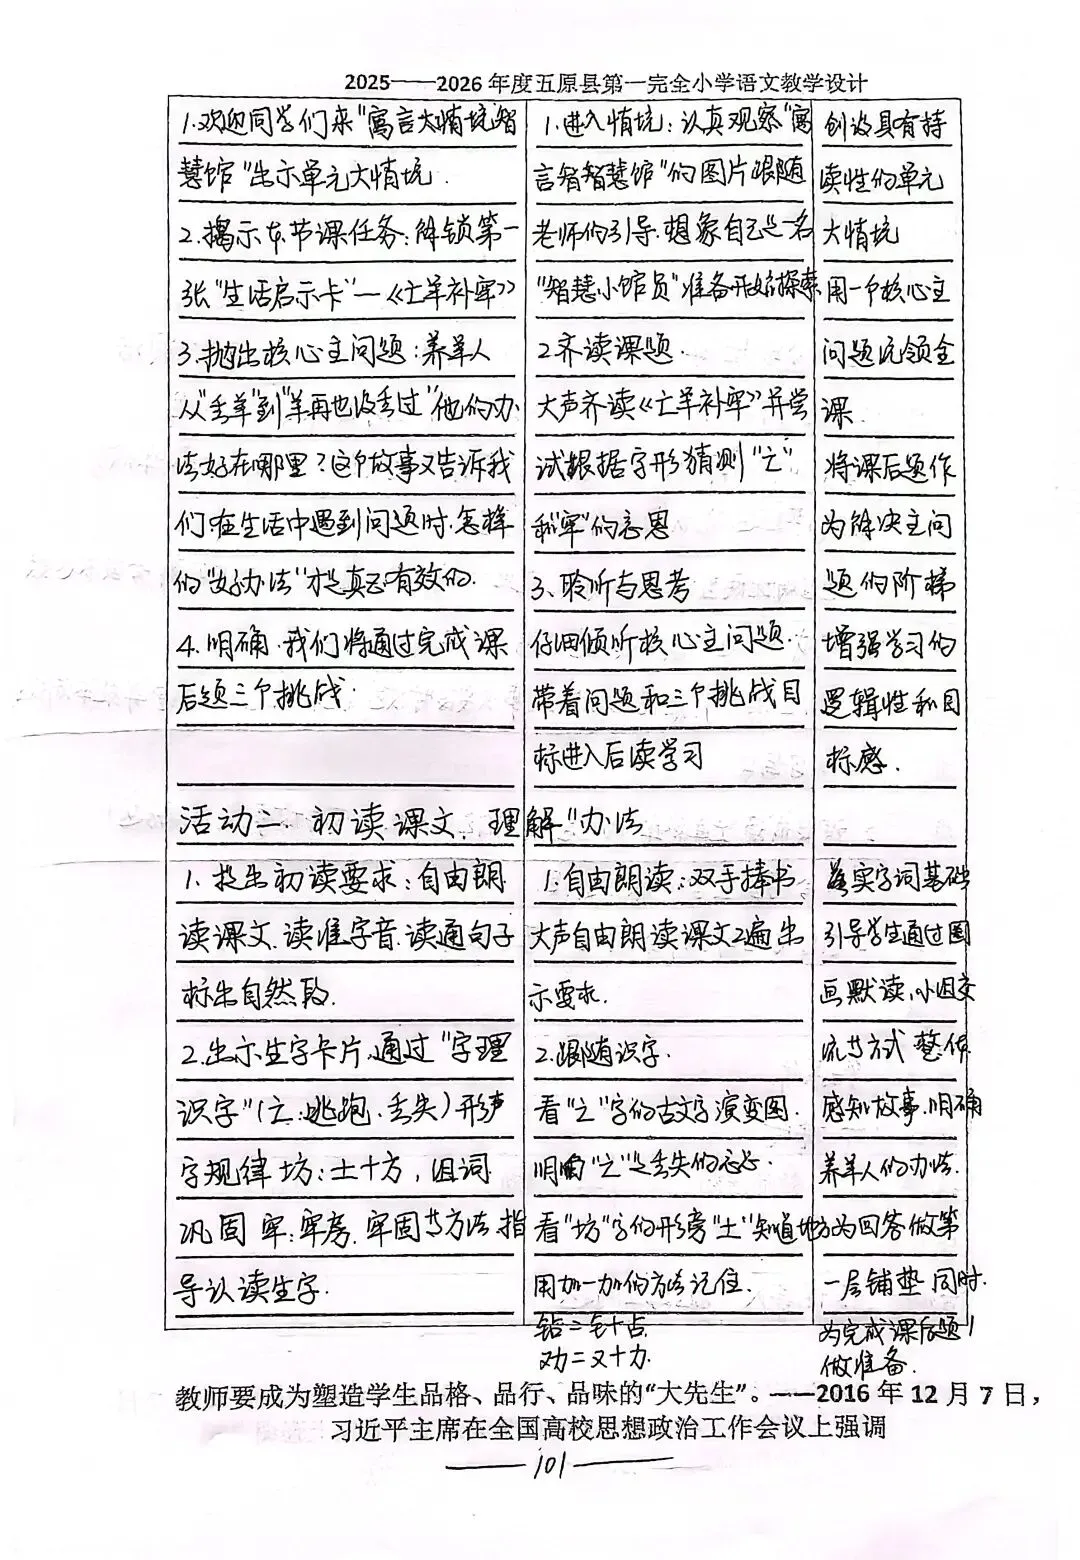 2025——2026年度五原县第一完全小学语文教学设计
1.欢迎同学们来"寓言大情境智
慧馆"出示单元大情境.
2.揭示本节课任务:解锁第一
张"生活启示卡"—《亡羊补牢》
3.抛出核心主问题:养羊人
从"丢羊"到"羊再也没丢过"他的办
法好在哪里?这个故事又告诉我
们在生活中遇到问题时.怎样
的"好办法"才是真正有效的.
4.明确.我们将通过完成课
后题三个挑战.
1.进入情境:认真观察"寓
言智慧馆"的图片跟随
老师的引导.想象自己是一名
"智慧小馆员"准备开始探索
2.齐读课题.
大声齐读《亡羊补牢》并尝
试根据字形猜测"亡"
和"牢"的意思
3、聆听与思考
仔细倾听核心主问题.
带着问题和三个挑战目
标进入后读学习
创设具有持
读性的单元
大情境
用一个核心主
问题统领全
课.
将课后题作
为解决主问
题的阶梯
增强学习的
逻辑性和目
标感.
活动二、初读课文、理解"办法
1、提出初读要求:自由朗
读课文.读准字音.读通句子
标出自然段.
2.出示生字卡片,通过"字理
识字"(亡:逃跑、丢失)形声
字规律 坊:土+方,组词
巩固 牢:牢房.牢固等方法.指
导认读生字.
1.自由朗读:双手捧书
大声自由朗读课文2遍出
示要求.
2.跟随识字.
看"亡"字的古文字演变图.
明白"亡"是丢失的意思.
看"坊"字的形旁"土"知道地方
用加一加的方法记住.
钻=钅+占
劝=又+力.
落实字词基础
引导学生通过圈
画默读,小组交
流等方式 整体
感知故事.明确
养羊人的办法.
为回答做第
一层铺垫 同时.
为完成课后题1
做准备.
教师要成为塑造学生品格、品行、品味的"大先生"。——2016年12月7日,
习近平主席在全国高校思想政治工作会议上强调
101